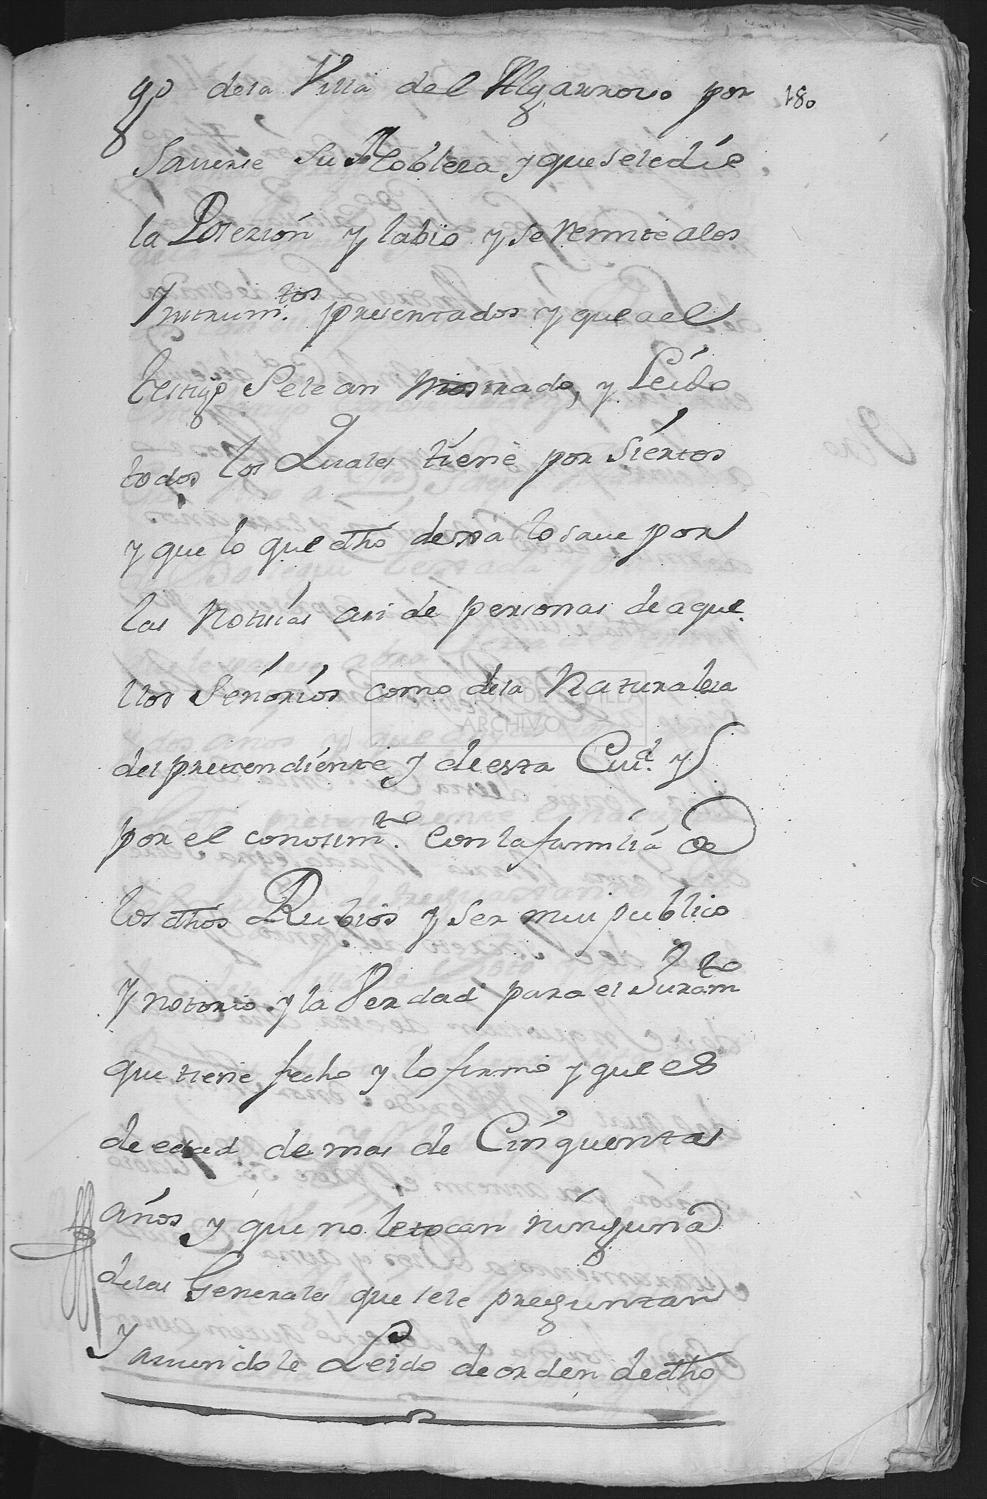 go de la Villa del Algarrovo por 180
Saverse su Nobleza y que se le díe
la Posezíon y la bío y se remite a los
Ynstrum.tos presentados y que a el
testigo Se le an mostrado, y Leído
todos los Quales tiene por Siertos
y que lo que dho dexa lo save por
las Notisías asi de personas de aque
llos Señoríos como de la Naturaleza
del pretendíente y de esta Ciud. y
por el conosim.to con la familia de
los dhos Rubios y ser mui publico
y notorio y la Verdad para el Juram.to
que tiene fecho y lo firmó y que es
de edad de mas de Cinquenta
años y que no le tocan ninguna
de las Generales que se le preguntan
Y aviendole Leido de orden de dho
DIPUTACIÓN DE SEVILLA
ARCHIVO